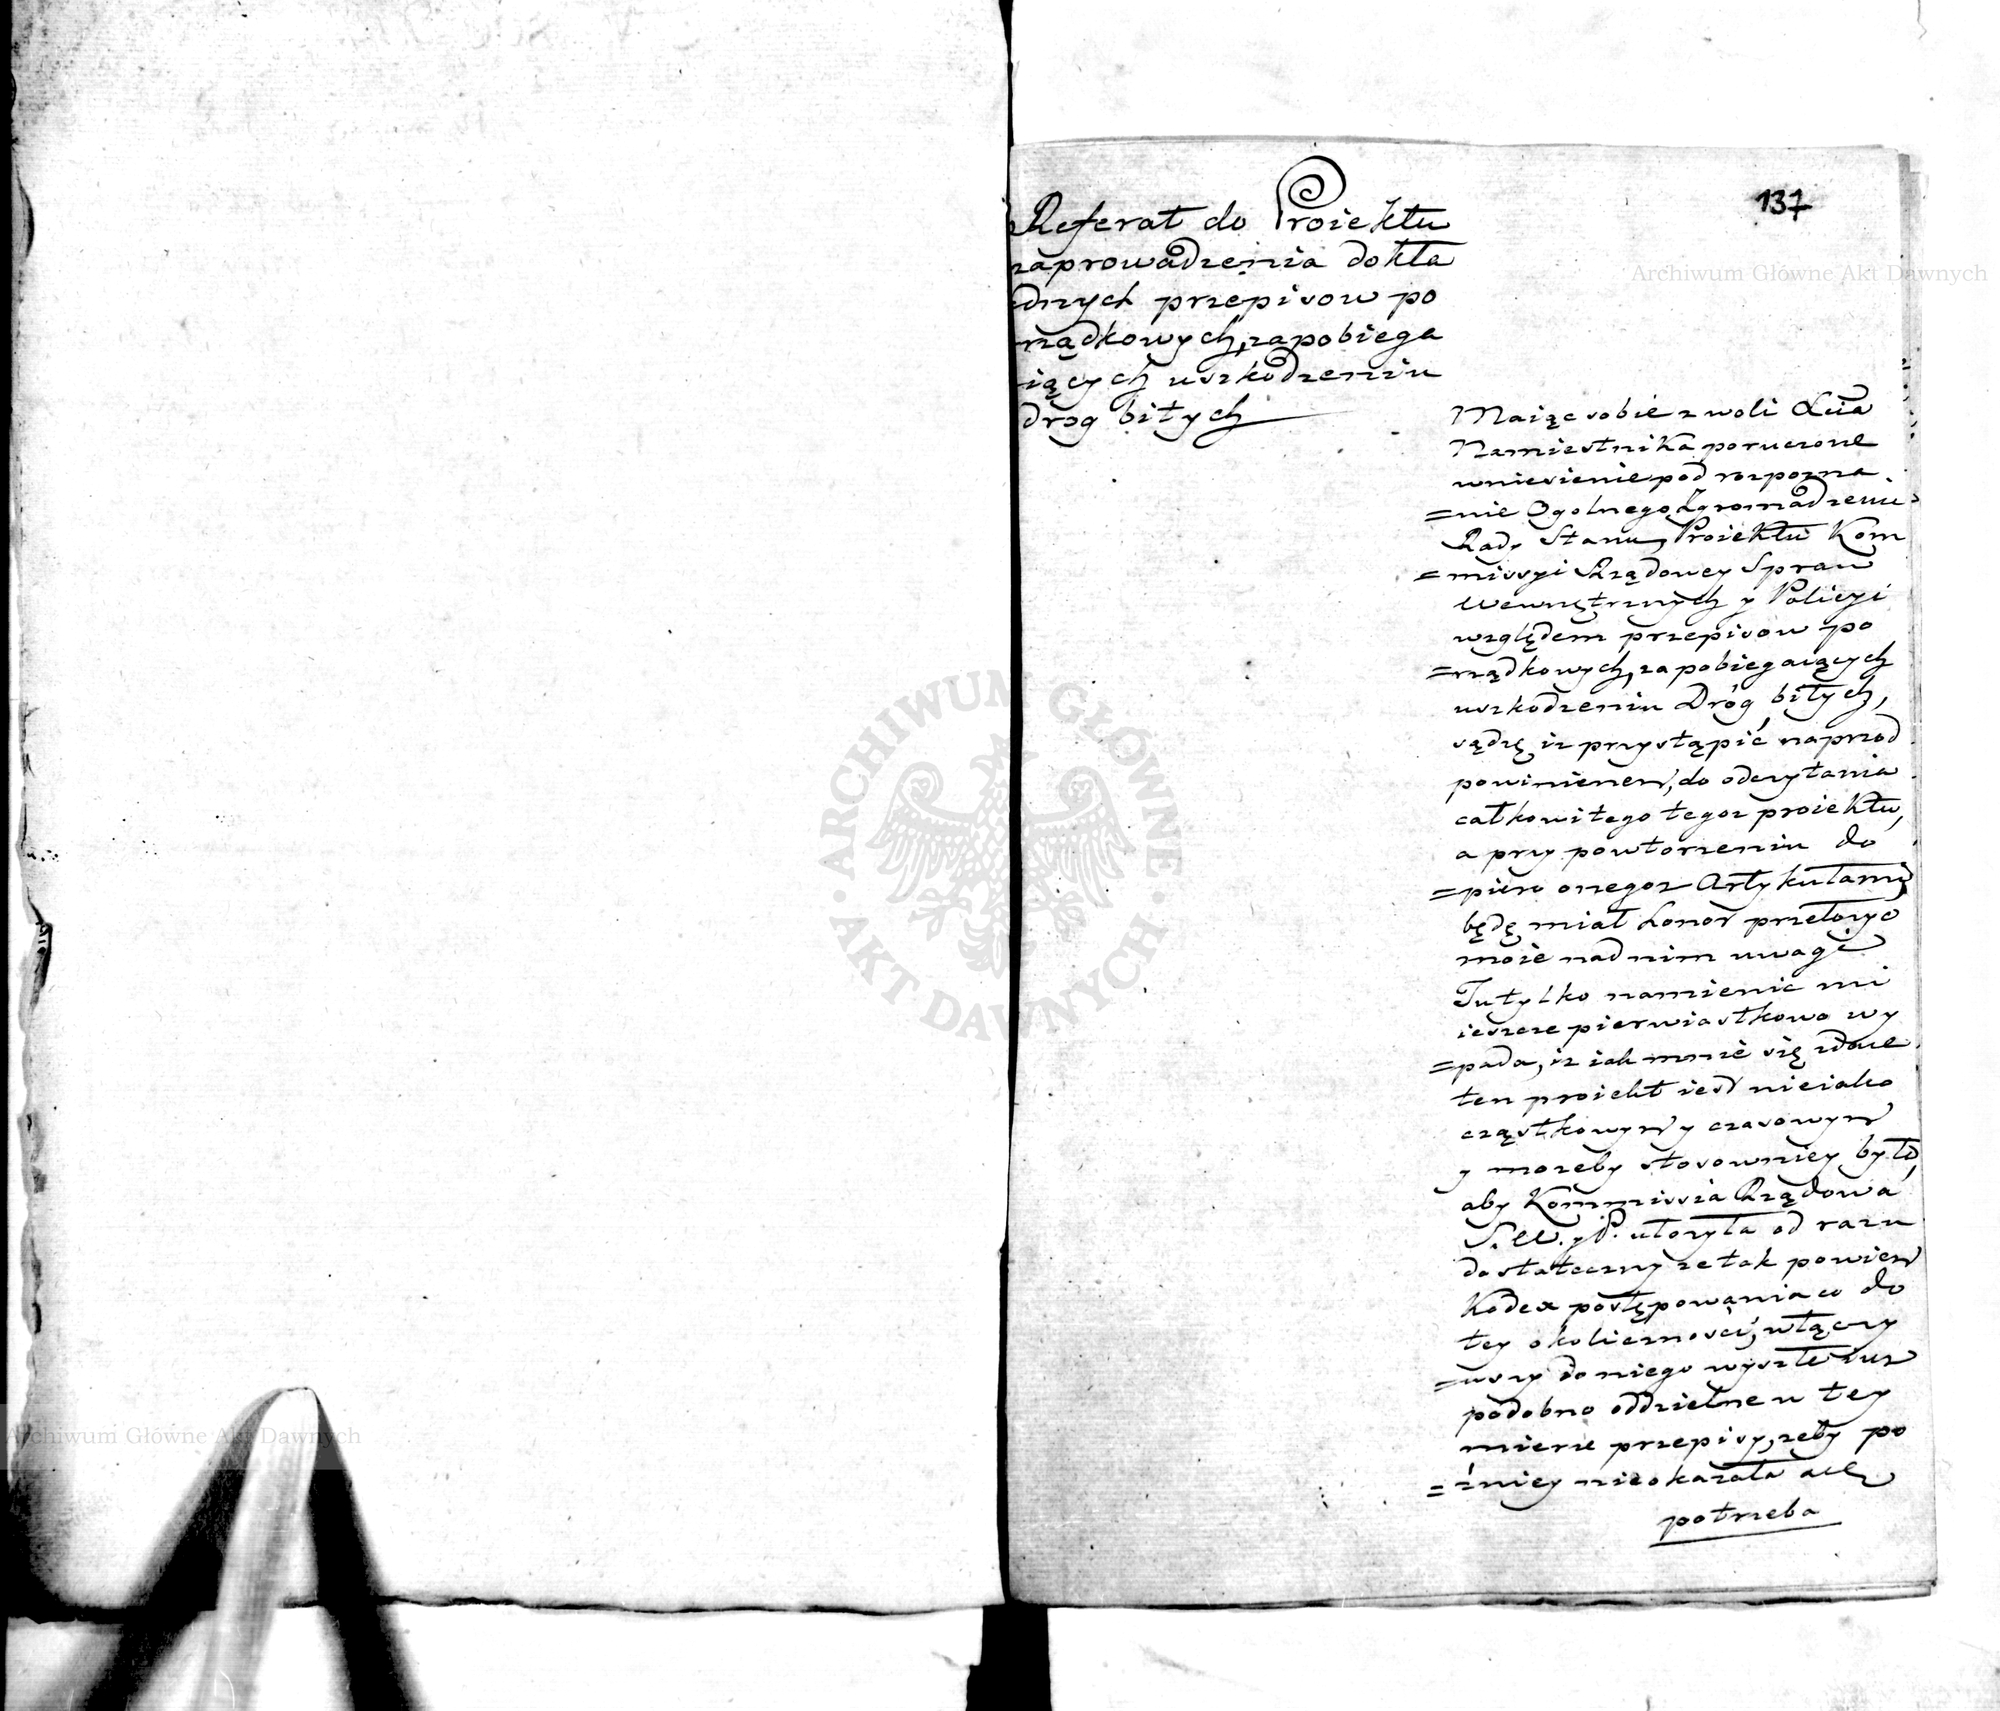 137
Referat do Proiektu
zaprowadzenia dokła
dnych przepisow po
rządkowych, zapobiega
iących uszkodzeniu
dróg bitych
Maiąc sobie z woli Xcia
Namiestnika poruczone
wniesienie pod rozpozna
=nie Ogolnego Zgromadzenia
Rady Stanu, Proiektu Kom
=missyi Rządowey Spraw
Wewnętrznych y Policyi
względem przepisow po
=rządkowych, zapobiegaiących
uszkodzeniu Dróg bitych,
sądzę iz przystąpić naprzod
powinienem, do odczytania
całkowitego tegoz proiektu,
a przy powtorzeniu do
=piero onegoz Artykułami,
będę miał honor przełozyc
moie nad nim uwagi
Tu tylko namienic mi
ieszcze pierwiastkowo wy
=pada, iz iak mnie się zdaie
ten proiekt iest nieiako
cząstkowym y czasowym
y mozeby stosowniey było,
aby Kommissia Rządowa
S. W. y P. ułozyła od razu
dostateczny ze tak powiem
Kodex postępowania co do
tey okoliczności, włączy
=wszy do niego wyszłe iuz
podobno oddzielne w tey
mierze przepisy, zeby po
=zniey nieokazała się
potrzeba
Archiwum Główne Akt Dawnych
ARCHIWUM GŁÓWNE
AKT DAWNYCH
Archiwum Główne Akt Dawnych